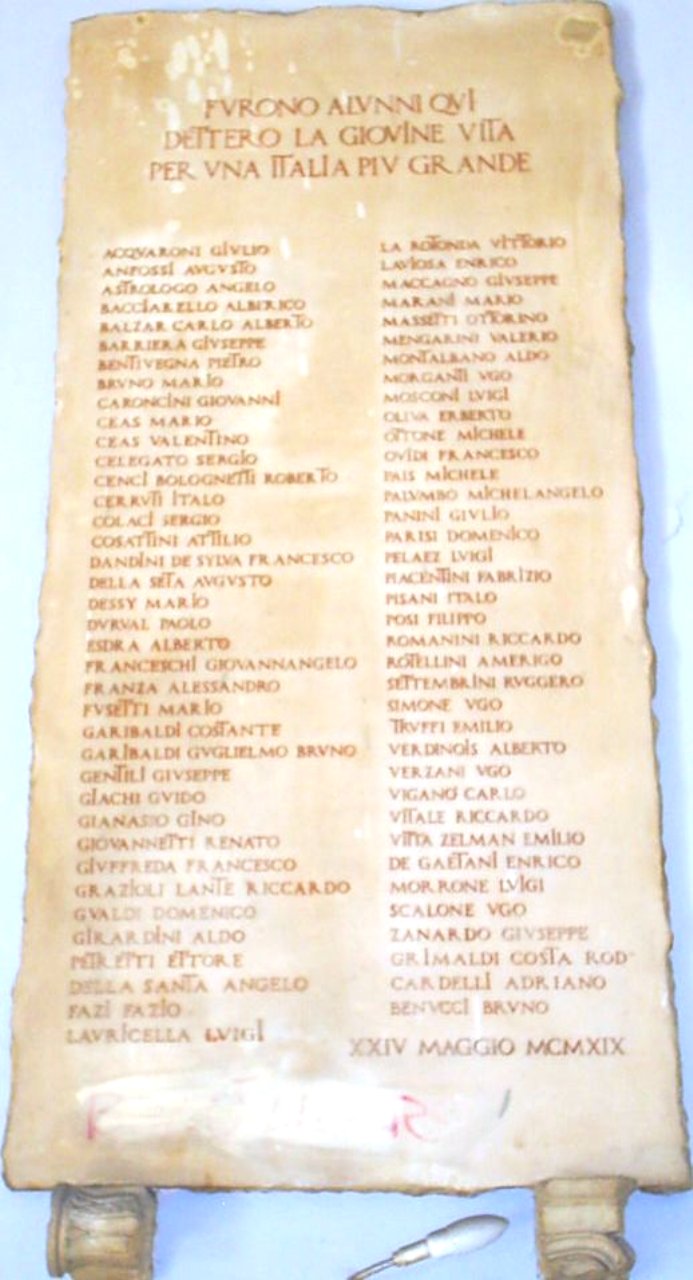 FVRONO ALVNNI QVI
DETTERO LA GIOVINE VITA
PER VNA ITALIA PIV GRANDE
ACQVARONI GIVLIO
ANFOSSI AVGVSTO
ASTROLOGO ANGELO
BACCIARELLO ALBERICO
BALZAR CARLO ALBERTO
BARRIERA GIVSEPPE
BENTIVEGNA PIETRO
BRVNO MARIO
CARONCINI GIOVANNI
CEAS MARIO
CEAS VALENTINO
CELEGATO SERGIO
CENCI BOLOGNETTI ROBERTO
CERRVTI ITALO
COLACI SERGIO
COSATTINI ATTILIO
DANDINI DE SYLVA FRANCESCO
DELLA SETA AVGVSTO
DESSY MARIO
DVRVAL PAOLO
ESDRA ALBERTO
FRANCESCHI GIOVANNANGELO
FRANZA ALESSANDRO
FVSETTI MARIO
GARIBALDI COSTANTE
GARIBALDI GVGLIELMO BRVNO
GENTILI GIVSEPPE
GIACHI GVIDO
GIANASSO GINO
GIOVANNETTI RENATO
GIVFFREDA FRANCESCO
GRAZIOLI LANTE RICCARDO
GVALDI DOMENICO
GIRARDINI ALDO
PETRETTI ETTORE
DELLA SANTA ANGELO
FAZI FAZIO
LAVRICELLA LVIGI
LA ROTONDA VITTORIO
LAVIOSA ENRICO
MACCAGNO GIVSEPPE
MARANI MARIO
MASSETTI OTTORINO
MENGARINI VALERIO
MONTALBANO ALDO
MORGANTI VGO
MOSCONI LVIGI
OLIVA ERBERTO
OTTONE MICHELE
OVIDI FRANCESCO
PAIS MICHELE
PALVMBO MICHELANGELO
PANINI GIVLIO
PARISI DOMENICO
PELAEZ LVIGI
PIACENTINI FABRIZIO
PISANI ITALO
POSI FILIPPO
ROMANINI RICCARDO
ROTELLINI AMERIGO
SETTEMBRINI RVGGERO
SIMONE VGO
TRVFFI EMILIO
VERDINOIS ALBERTO
VERZANI VGO
VIGANO' CARLO
VITALE RICCARDO
VITTA ZELMAN EMILIO
DE GAETANI ENRICO
MORRONE LVIGI
SCALONE VGO
ZANARDO GIVSEPPE
GRIMALDI COSTA ROD°
CARDELLI ADRIANO
BENVCCI BRVNO
XXIV MAGGIO MCMXIX